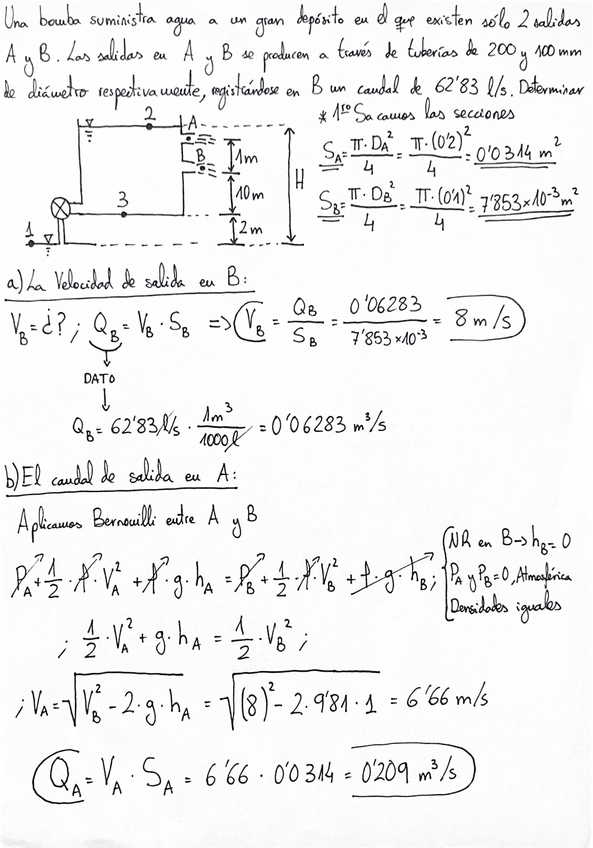 Una bomba suministra agua a un gran depósito en el que existen sólo 2 salidas
A y B. Las salidas en A y B se producen a través de tuberías de 200 y 100 mm
de diámetro respectivamente, registrándose en B un caudal de 62'83 l/s. Determinar
* 1ro Sacamos las secciones
2 A
B 1m
H
10m
3
1 2m
S_A = π·D_A²/4 = π·(0'2)²/4 = 0'0314 m²
S_B = π·D_B²/4 = π·(0'1)²/4 = 7'853×10⁻³ m²
a) La Velocidad de salida en B:
V_B = ¿?; Q_B = V_B · S_B => V_B = Q_B/S_B = 0'06283/7'853×10⁻³ = 8 m/s
DATO
Q_B = 62'83 l/s · 1m³/1000l = 0'06283 m³/s
b) El caudal de salida en A:
Aplicamos Bernouilli entre A y B
P_A + 1/2 · ρ · V_A² + ρ · g · h_A = P_B + 1/2 · ρ · V_B² + ρ · g · h_B;
NR en B → h_B = 0
P_A y P_B = 0, Atmosférica
Densidades iguales
; 1/2 · V_A² + g · h_A = 1/2 · V_B² ;
; V_A = √(V_B² - 2 · g · h_A) = √((8)² - 2 · 9'81 · 1) = 6'66 m/s
Q_A = V_A · S_A = 6'66 · 0'0314 = 0'209 m³/s